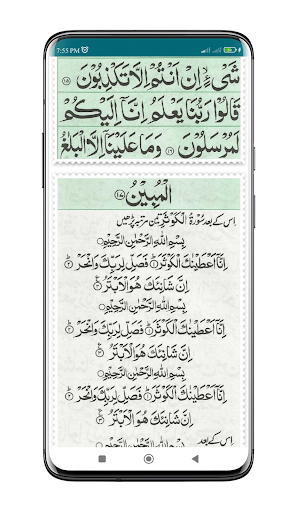 7:55 PM
شَیْءٍ ۙ اِنْ اَنْتُمْ اِلَّا تَكْذِبُوْنَ ۝۱۵
قَالُوْا رَبُّنَا یَعْلَمُ اِنَّاۤ اِلَیْكُمْ
لَمُرْسَلُوْنَ ۝۱۶ وَمَا عَلَیْنَاۤ اِلَّا الْبَلٰغُ
الْمُبِیْنُ ۝۱۷
اس کے بعد سُوْرَۃُ الْکَوْثَرْ تین مرتبہ پڑھیں
بِسْمِ اللهِ الرَّحْمٰنِ الرَّحِیْمِ
اِنَّاۤ اَعْطَیْنٰكَ الْكَوْثَرَ ۝۱ فَصَلِّ لِرَبِّكَ وَانْحَرْ ۝۲
اِنَّ شَانِئَكَ هُوَ الْاَبْتَرُ ۝۳
بِسْمِ اللهِ الرَّحْمٰنِ الرَّحِیْمِ
اِنَّاۤ اَعْطَیْنٰكَ الْكَوْثَرَ ۝۱ فَصَلِّ لِرَبِّكَ وَانْحَرْ ۝۲
اِنَّ شَانِئَكَ هُوَ الْاَبْتَرُ ۝۳
بِسْمِ اللهِ الرَّحْمٰنِ الرَّحِیْمِ
اِنَّاۤ اَعْطَیْنٰكَ الْكَوْثَرَ ۝۱ فَصَلِّ لِرَبِّكَ وَانْحَرْ ۝۲
اِنَّ شَانِئَكَ هُوَ الْاَبْتَرُ ۝۳
اس کے بعد
بِسْمِ اللهِ الرَّحْمٰنِ الرَّحِیْمِ